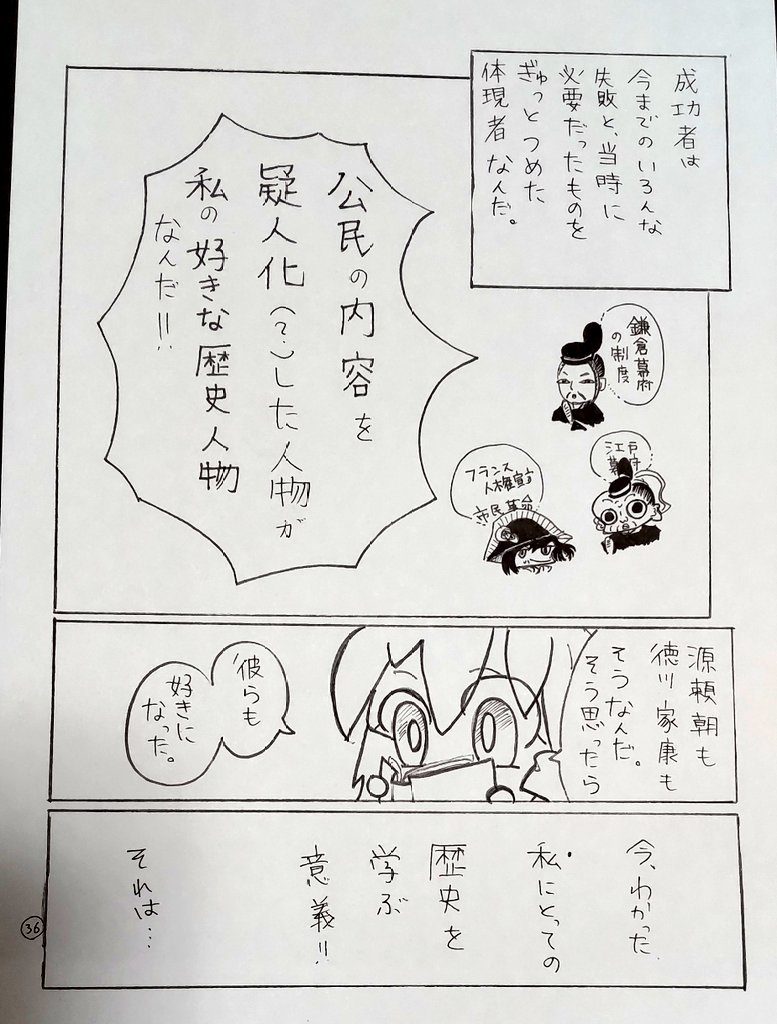 成功者は
今までのいろんな
失敗と、当時に
必要だったものを
ぎゅっとつめた
体現者なんだ。
公民の内容を
疑人化(?)した人物が
私の好きな歴史人物
なんだ!!
鎌倉幕府
の制度
江戸
幕府
フランス
人権宣言
市民革命
源頼朝も
徳川家康も
そうなんだ。
そう思ったら
彼らも
好きに
なった。
今、わかった
私にとっての
歴史を
学ぶ
意義!!
それは…
36